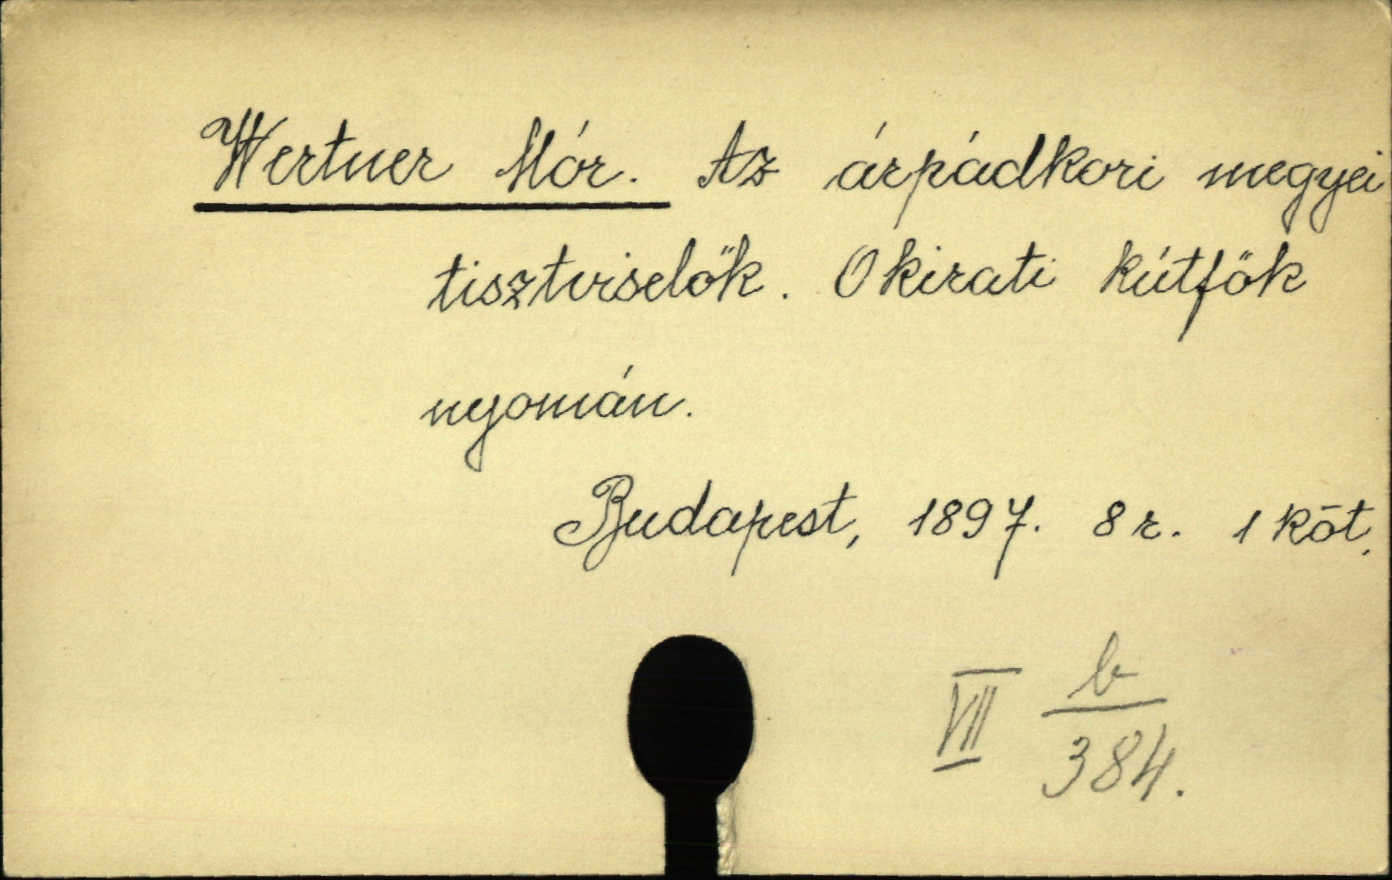 Wertner Mór. Az árpádkori megyei
tisztviselők. Okirati kútfők
nyomán.
Budapest, 1897. 8 r. 1 köt.
VII b/384.